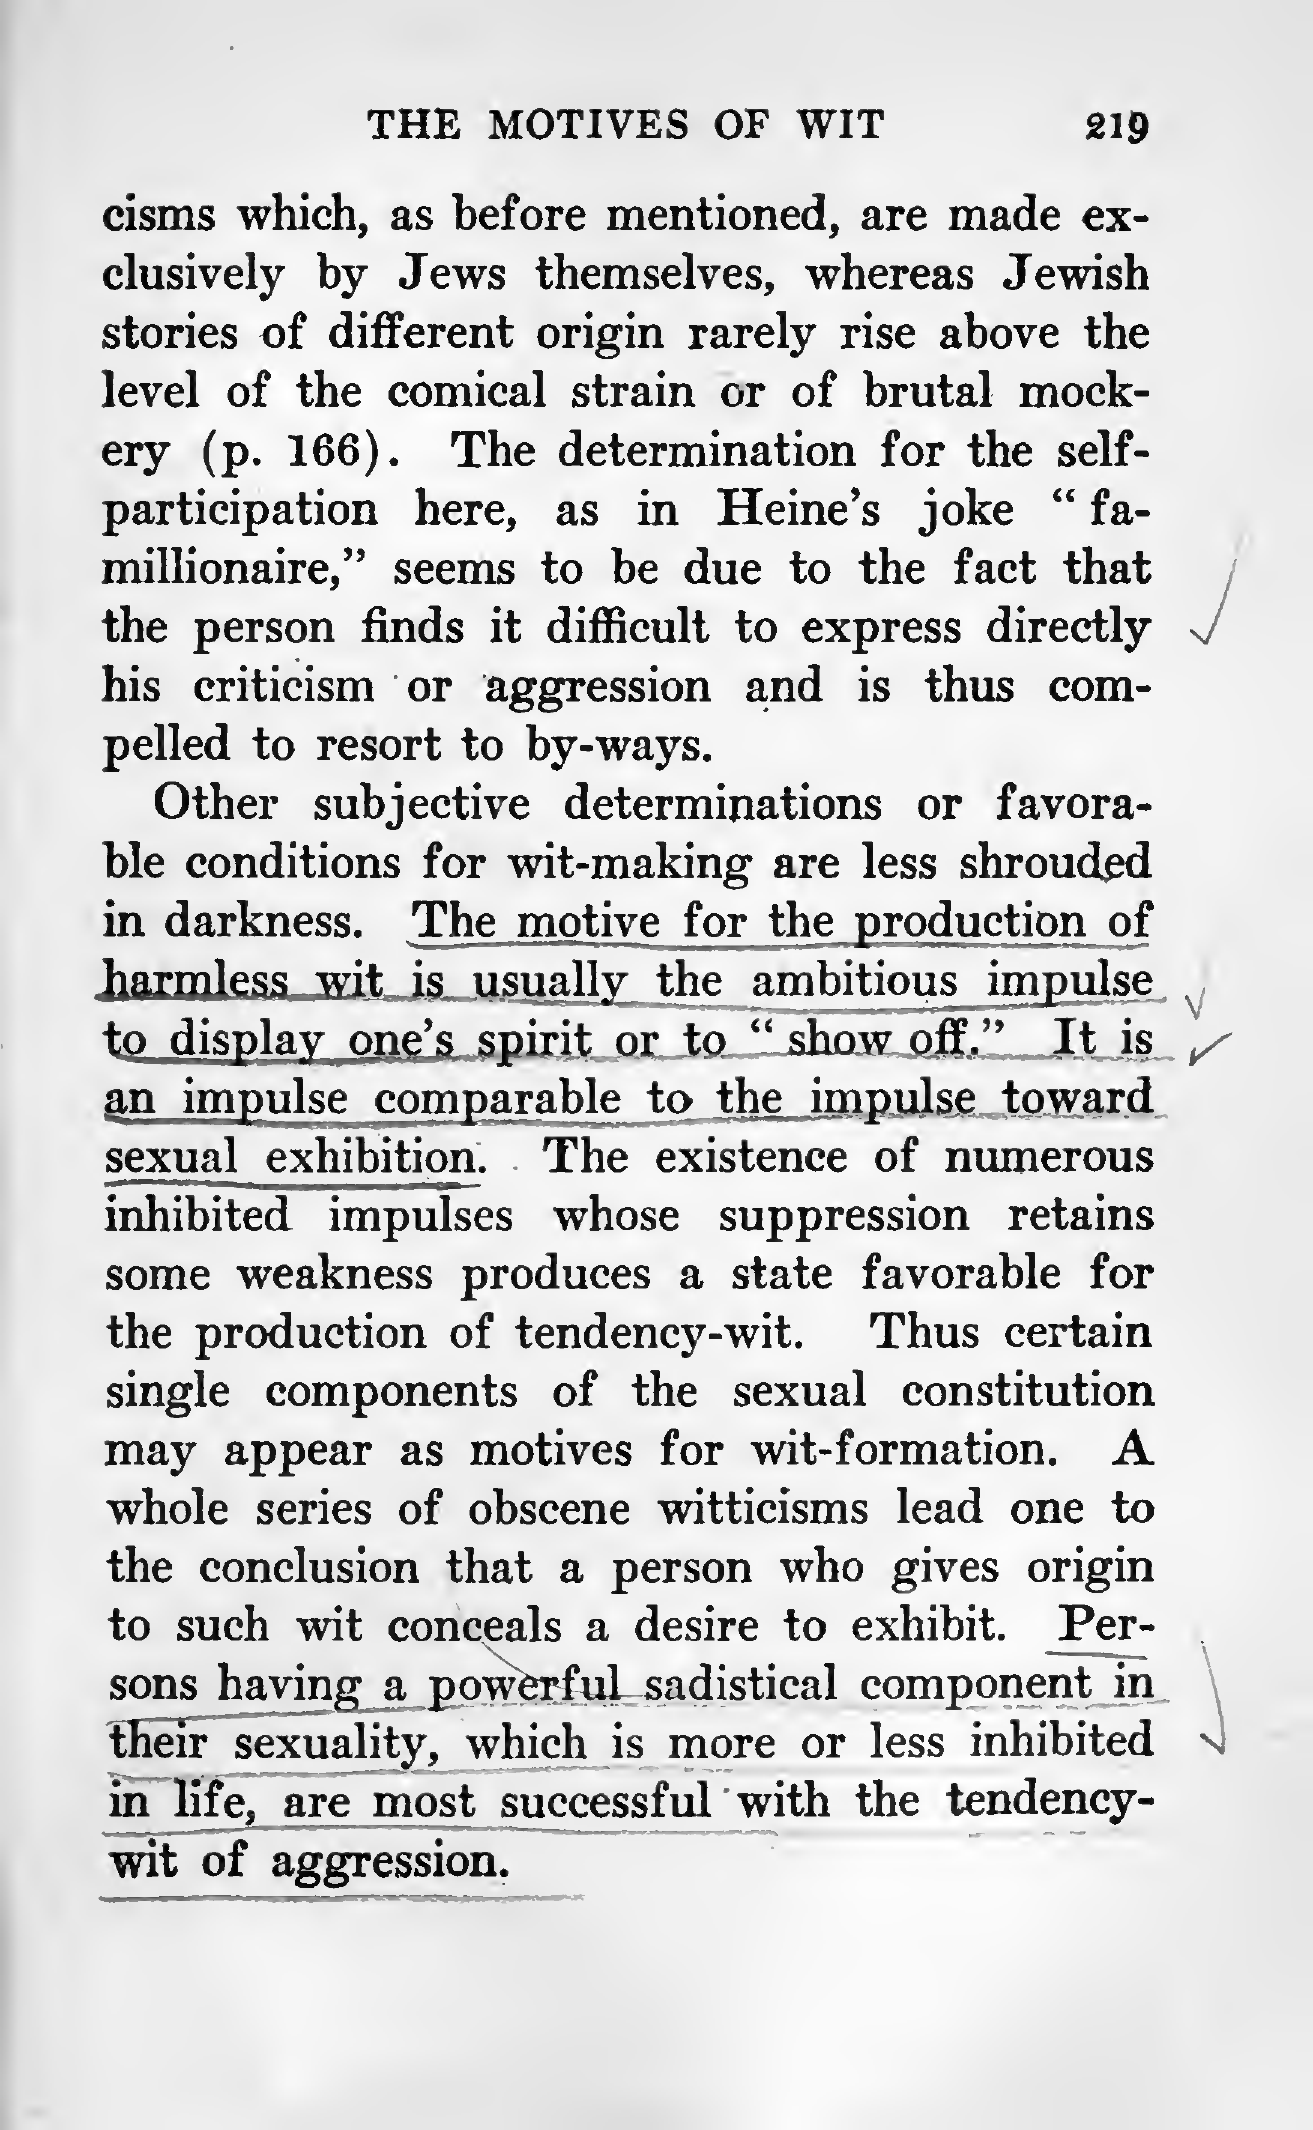 THE MOTIVES OF WIT 219
cisms which, as before mentioned, are made ex-
clusively by Jews themselves, whereas Jewish
stories of different origin rarely rise above the
level of the comical strain or of brutal mock-
ery (p. 166). The determination for the self-
participation here, as in Heine's joke “fa-
millionaire,” seems to be due to the fact that
the person finds it difficult to express directly
his criticism or aggression and is thus com-
pelled to resort to by-ways.
Other subjective determinations or favora-
ble conditions for wit-making are less shrouded
in darkness. The motive for the production of
harmless wit is usually the ambitious impulse
to display one's spirit or to “show off.” It is
an impulse comparable to the impulse toward
sexual exhibition. The existence of numerous
inhibited impulses whose suppression retains
some weakness produces a state favorable for
the production of tendency-wit. Thus certain
single components of the sexual constitution
may appear as motives for wit-formation. A
whole series of obscene witticisms lead one to
the conclusion that a person who gives origin
to such wit conceals a desire to exhibit. Per-
sons having a powerful sadistical component in
their sexuality, which is more or less inhibited
in life, are most successful with the tendency-
wit of aggression.